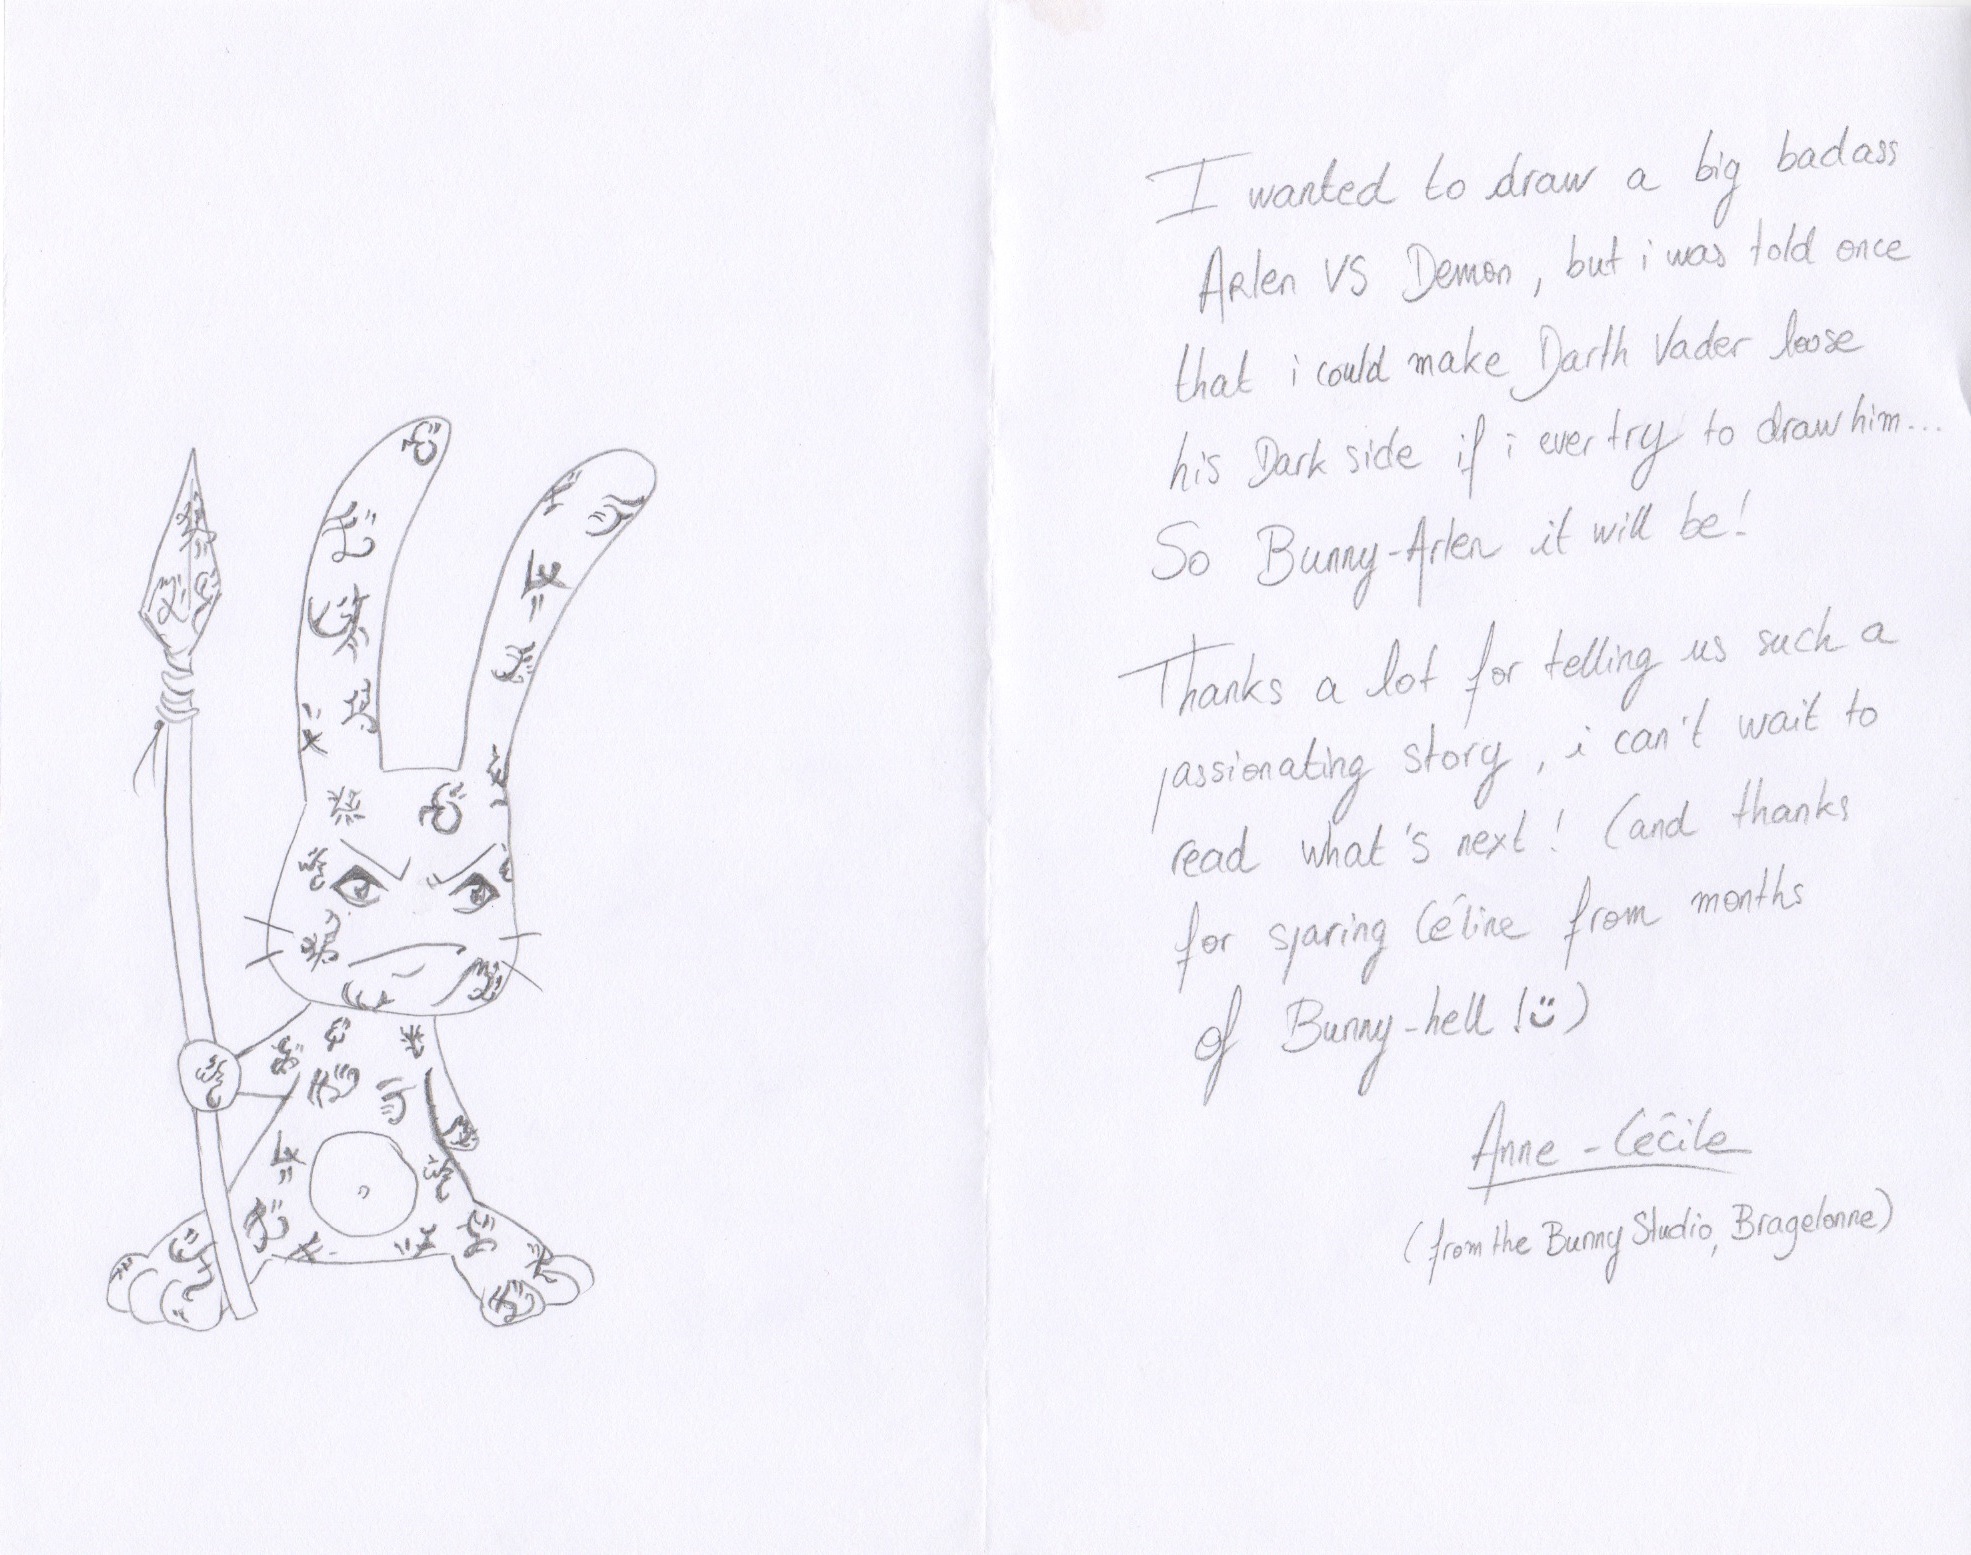 I wanted to draw a big badass
Arlen VS Demon, but i was told once
that i could make Darth Vader loose
his Dark side if i ever try to draw him...
So Bunny-Arlen it will be!
Thanks a lot for telling us such a
passionating story, i can't wait to
read what's next! (and thanks
for sparing Céline from months
of Bunny-hell !ü)
Anne-Cécile
(from the Bunny Studio, Bragelonne)